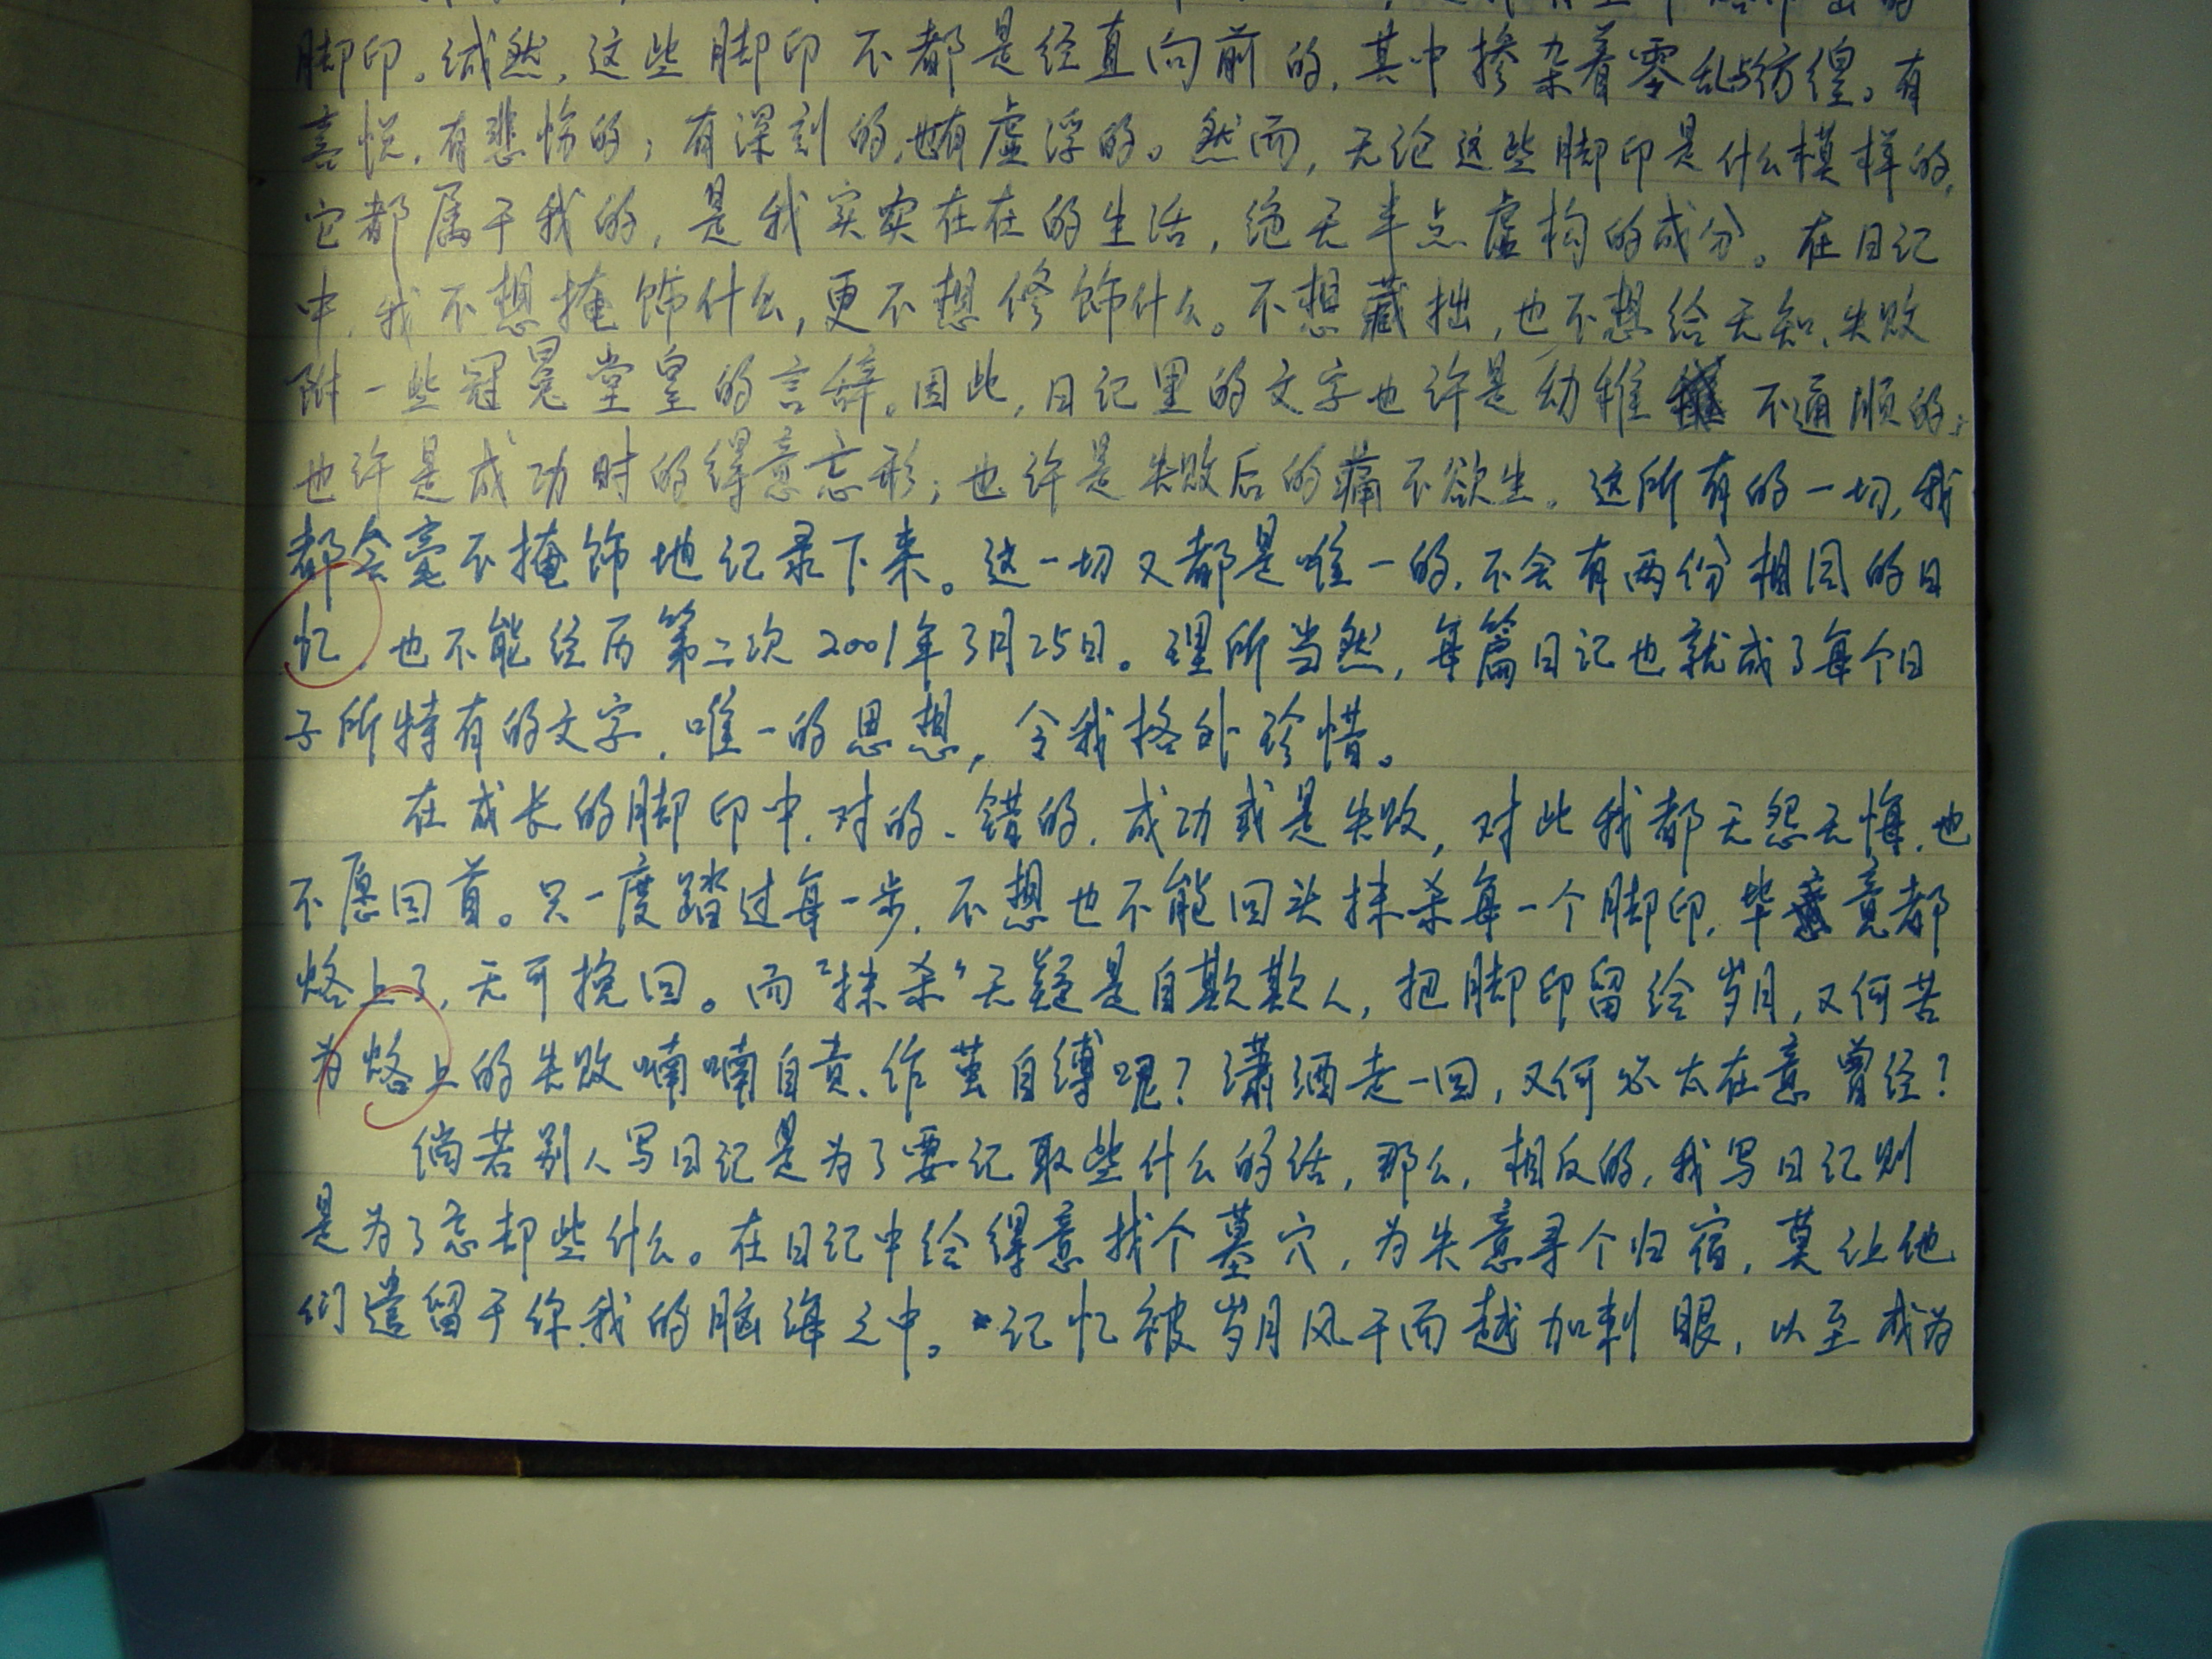 脚印。诚然，这些脚印不都是经直向前的，其中掺杂着零乱与彷徨。有
喜悦，有悲伤的；有深刻的，也有虚浮的。然而，无论这些脚印是什么模样的，
它都属于我的，是我实实在在的生活，绝无半点虚构的成分。在日记
中，我不想掩饰什么，更不想修饰什么。不想藏拙，也不想给无知、失败
附一些冠冕堂皇的言辞。因此，日记里的文字也许是幼稚不通顺的；
也许是成功时的得意忘形；也许是失败后的痛不欲生。这所有的一切，我
都会毫不掩饰地记录下来。这一切又都是唯一的，不会有两份相同的日
忆，也不能经历第二次2001年3月25日。理所当然，每篇日记也就成了每个日
子所特有的文字，唯一的思想，令我格外珍惜。
在成长的脚印中，对的、错的，成功或是失败，对此我都无怨无悔，也
不愿回首。只一度踏过每一步，不想也不能回头抹杀每一个脚印，毕竟都
烙上了，无可挽回。而“抹杀”无疑是自欺欺人，把脚印留给岁月，又何苦
为烙上的失败喃喃自责、作茧自缚呢？潇洒走一回，又何必太在意曾经？
倘若别人写日记是为了要记取些什么的话，那么，相反的，我写日记则
是为了忘却些什么。在日记中给得意找个墓穴，为失意寻个归宿，莫让他
们遗留于你我的脑海之中。记忆被岁月风干而越加刺眼，以至成为